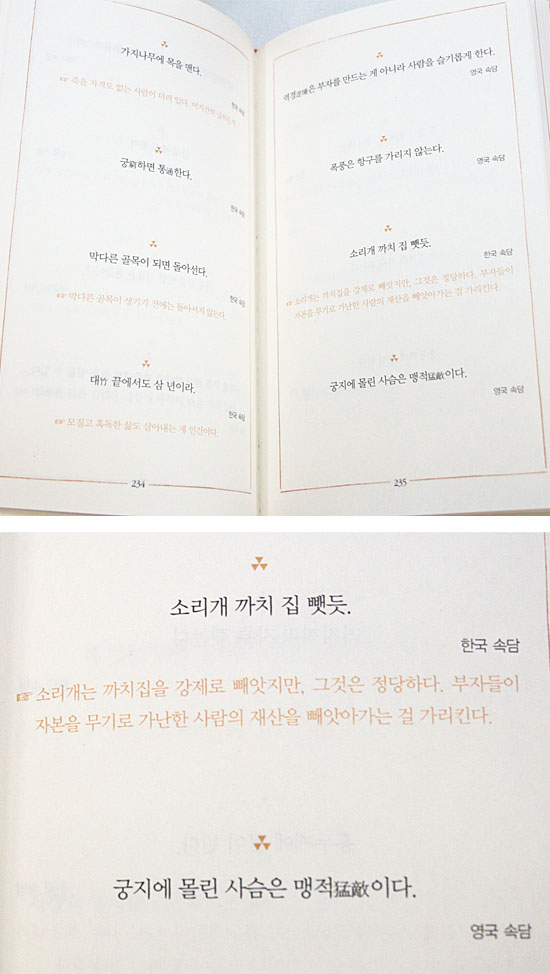 가지나무에 목을 맨다.
한국 속담
☞ 죽을 자격도 없는 사람이 더러 있다.
궁窮하면 통通한다.
한국 속담
막다른 골목이 되면 돌아선다.
한국 속담
☞ 막다른 골목이 생기기 전에는 돌아서지 않는다.
대竹 끝에서도 삼 년이라.
한국 속담
☞ 모질고 혹독한 삶도 살아내는 게 인간이다.
234
역경逆境은 부자를 만드는 게 아니라 사람을 슬기롭게 한다.
영국 속담
폭풍은 항구를 가리지 않는다.
영국 속담
소리개 까치 집 뺏듯.
한국 속담
☞ 소리개는 까치집을 강제로 빼앗지만, 그것은 정당하다. 부자들이
자본을 무기로 가난한 사람의 재산을 빼앗아가는 걸 가리킨다.
궁지에 몰린 사슴은 맹적猛敵이다.
영국 속담
235
소리개 까치 집 뺏듯.
한국 속담
☞ 소리개는 까치집을 강제로 빼앗지만, 그것은 정당하다. 부자들이
자본을 무기로 가난한 사람의 재산을 빼앗아가는 걸 가리킨다.
궁지에 몰린 사슴은 맹적猛敵이다.
영국 속담